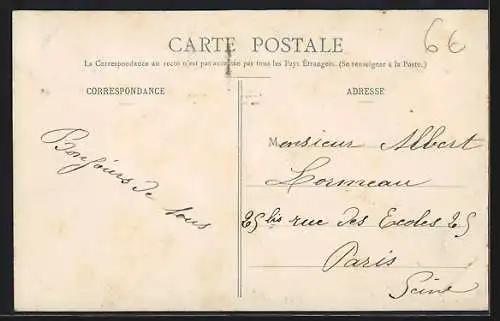 6€
CARTE POSTALE
La Correspondance au recto n'est pas acceptée par tous les Pays Étrangers. (Se renseigner à la Poste.)
CORRESPONDANCE
ADRESSE
Bonjours de tous
Monsieur Albert
Lormeau
25 bis rue des Ecoles 25
Paris
Seine